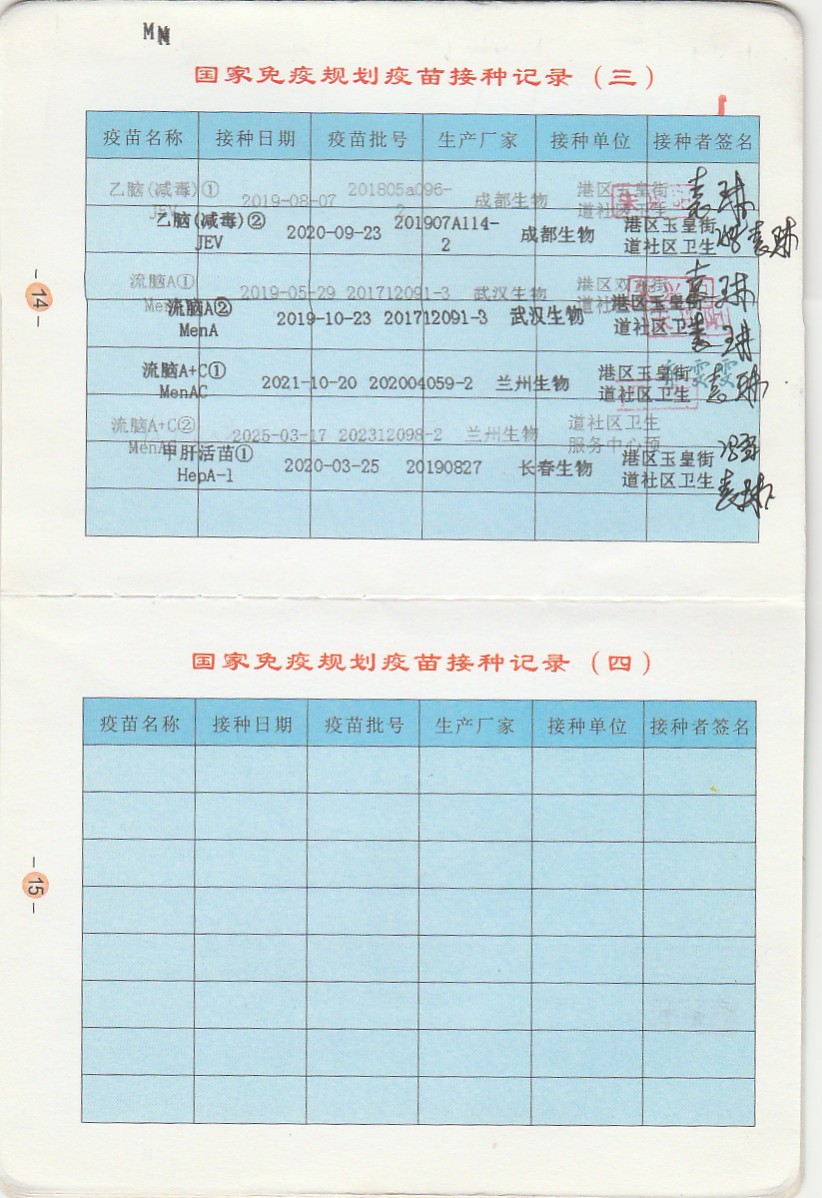 MM
国家免疫规划疫苗接种记录（三）
疫苗名称 接种日期 疫苗批号 生产厂家 接种单位 接种者签名
乙脑(减毒)① 2019-08-07 201805a096- 成都生物 港区玉皇街 袁琳
JEV 2 道社区卫生
乙脑(减毒)② 2020-09-23 201907A114- 成都生物 港区玉皇街 袁琳
JEV 2 道社区卫生
流脑A① 2019-05-29 201712091-3 武汉生物 港区 袁琳
Men
流脑A② 2019-10-23 201712091-3 武汉生物 港区玉皇街 袁琳
MenA 道社区卫生
流脑A+C① 2021-10-20 202004059-2 兰州生物 港区玉皇街 袁琳
MenAC 道社区卫生
流脑A+C② 2025-03-17 202312098-2 兰州生物 道社区卫生
MenAC 服务中心预
甲肝活苗① 2020-03-25 20190827 长春生物 港区玉皇街 袁琳
HepA-l 道社区卫生
-14-
国家免疫规划疫苗接种记录（四）
疫苗名称 接种日期 疫苗批号 生产厂家 接种单位 接种者签名
-15-